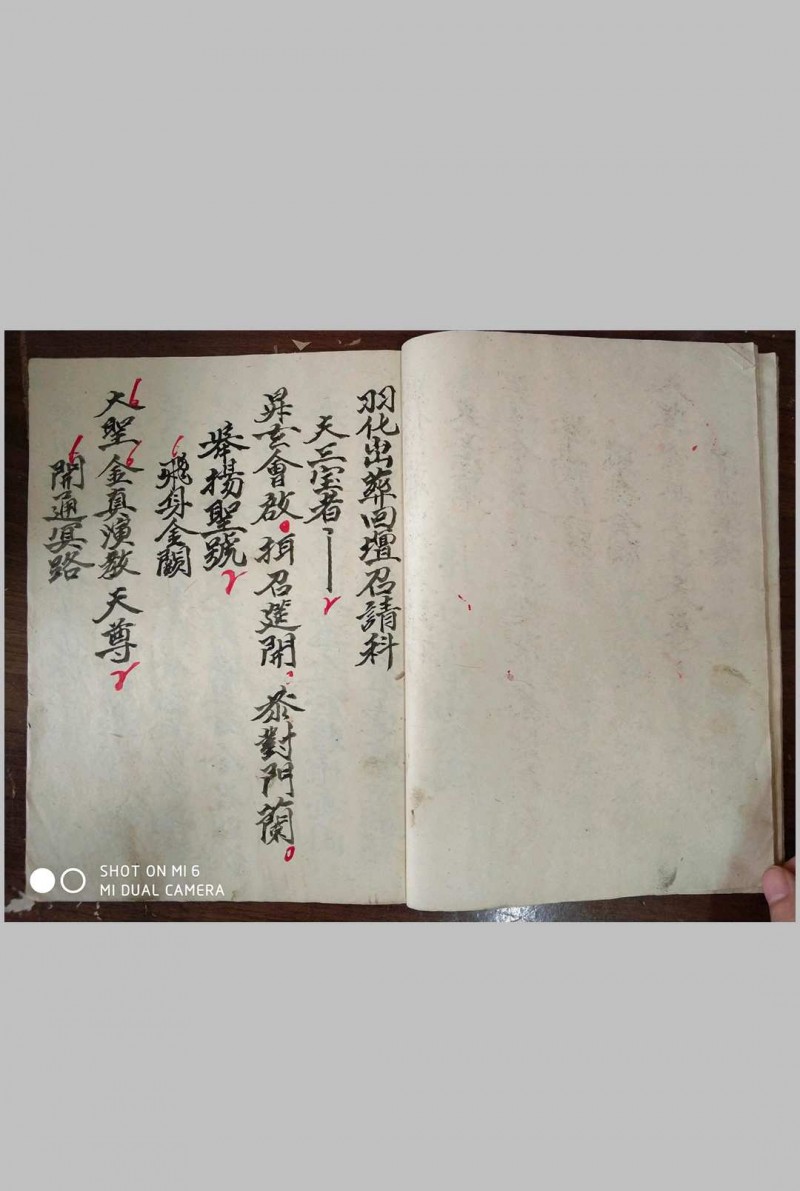 羽化出葬回壇召請科
天三宝者
昇玄會啟召筵開恭對門蘭
舉揚聖號
飛身金闕
大聖金真演教天尊
開通冥路
SHOT ON MI 6
MI DUAL CAMERA